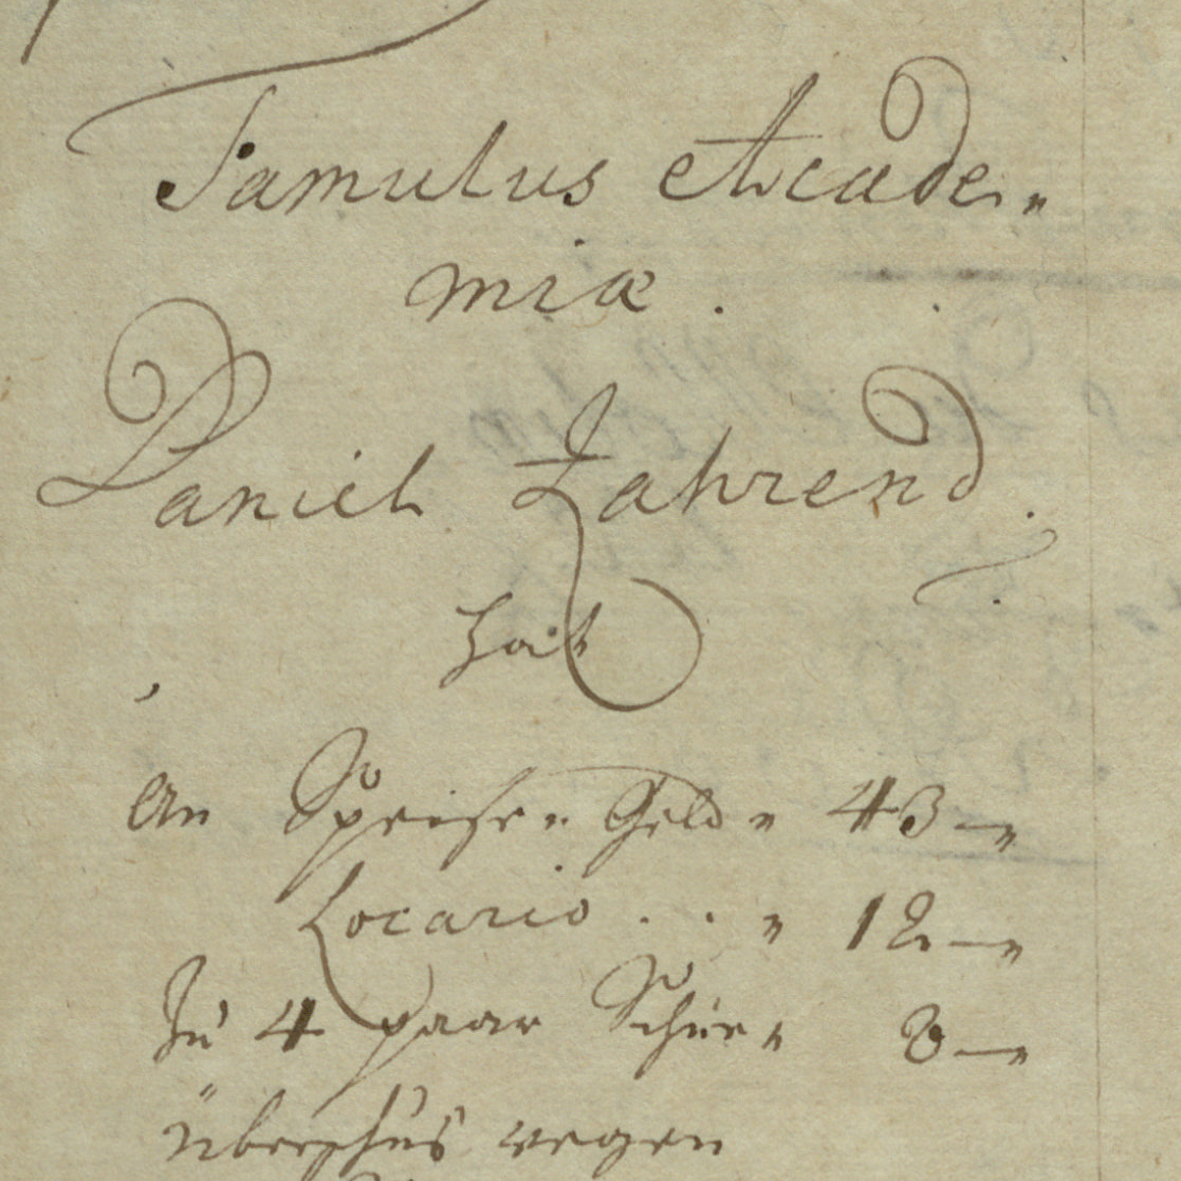 Famulus Acade„
miæ.
Daniel Zahrend.
hat
An Speise„ Geld„ 43 —„
Locario . . „ 12 —„
Zu 4 paar Schue„ 8 —„
überschus wegen